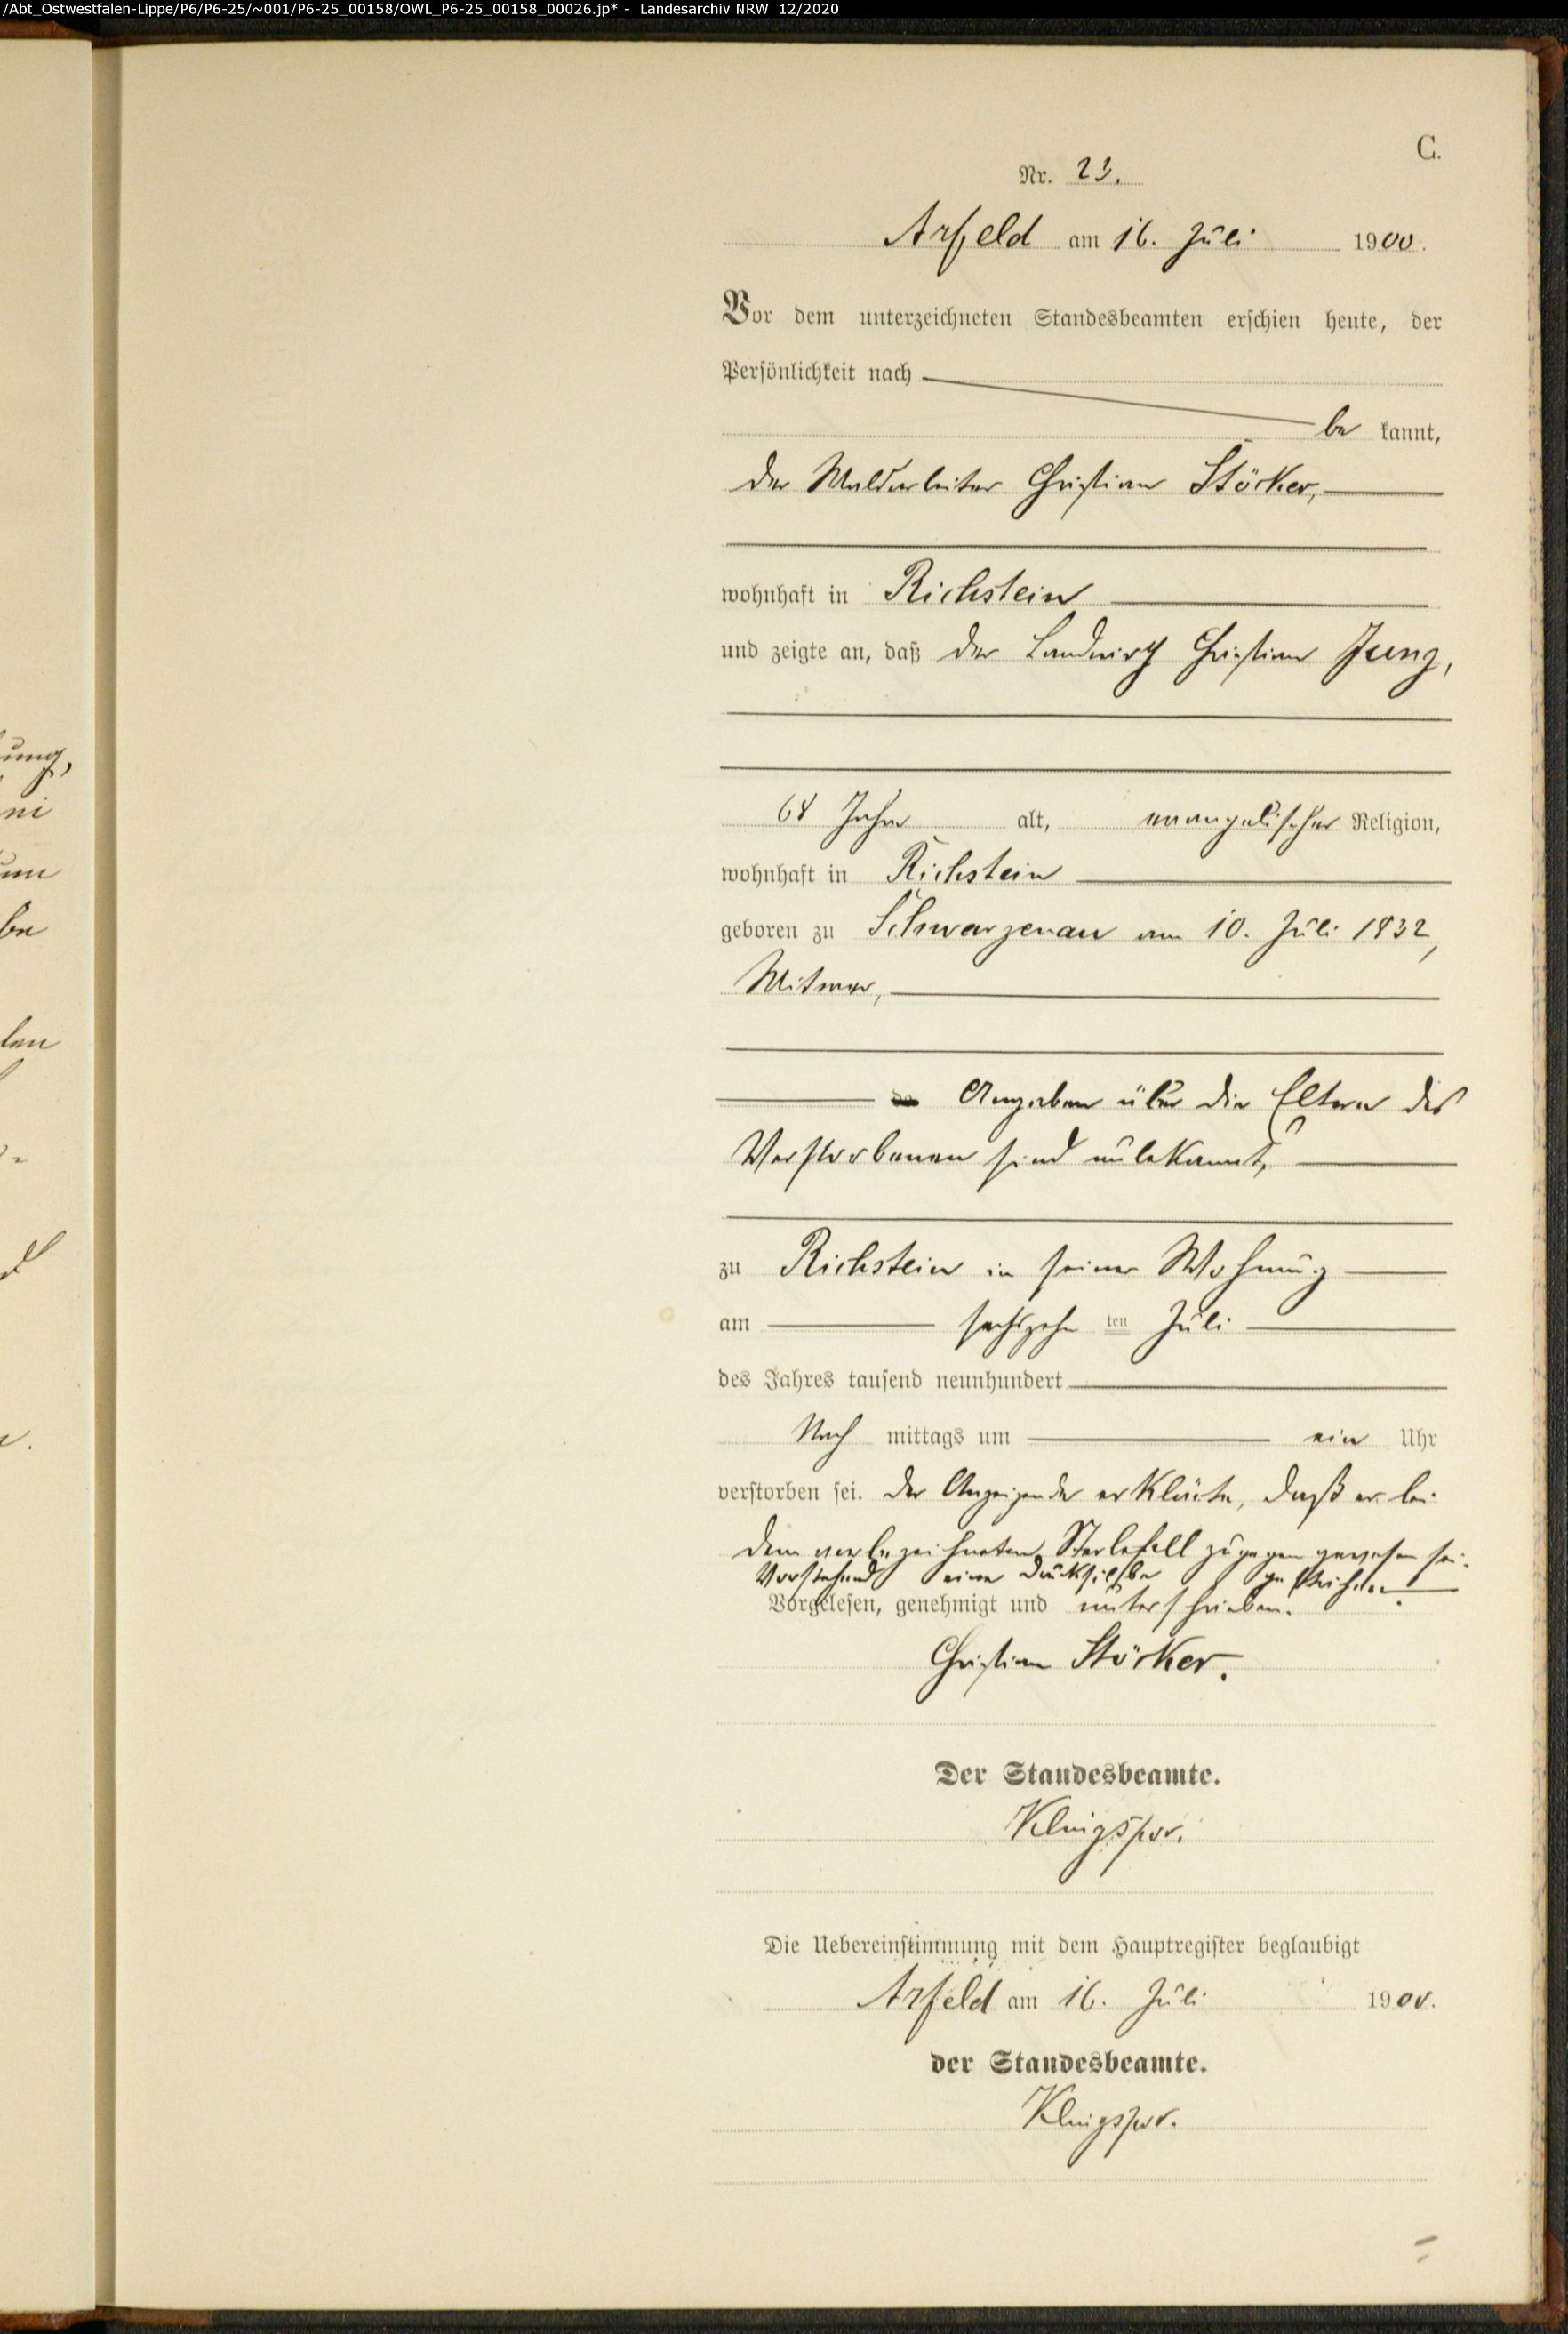 /Abt_Ostwestfalen-Lippe/P6/P6-25/~001/P6-25_00158/OWL_P6-25_00158_00026.jp* - Landesarchiv NRW 12/2020
C.
Nr. 23.
Arfeld am 16. Juli 1900.
Vor dem unterzeichneten Standesbeamten erschien heute, der
Persönlichkeit nach
be kannt,
der Waldarbeiter Christian Stöcker,
wohnhaft in Richstein
und zeigte an, daß der Landwirth Christian Jung,
68 Jahre alt, evangelischer Religion,
wohnhaft in Richstein
geboren zu Schwarzenau am 10. Juli 1832,
Witwer,
Angaben über die Eltern des
Verstorbenen sind unbekannt,
zu Richstein in seiner Wohnung
am sechszehn ten Juli
des Jahres tausend neunhundert
Nach mittags um ein Uhr
verstorben sei. Der Anzeigende erklärte, daß er bei
dem vorbezeichneten Sterbefall zugegen gewesen sei.
Vorstehend eine Drucksilbe gestrichen.
Vorgelesen, genehmigt und unterschrieben.
Christian Stöcker.
Der Standesbeamte.
Klingspor.
Die Uebereinstimmung mit dem Hauptregister beglaubigt
Arfeld am 16. Juli 1900.
der Standesbeamte.
Klingspor.
ung,
ni
be
len